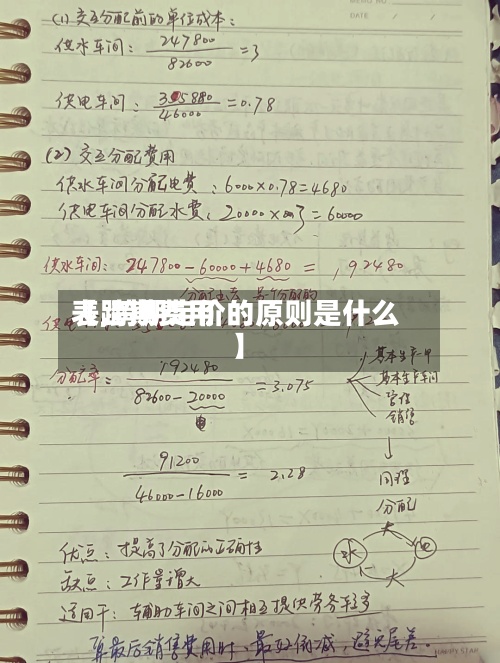 (1) 交互分配前的单位成本：
供水车间： 247800/82600 =3
供电车间： 35880/46000 =0.78
(2) 交互分配费用
供水车间分配电费：6000×0.78=4680
供电车间分配水费：20000×3=60000
供水车间：247800-60000+4680=192480
的原则是什么
】
分配率： 192480/(82600-20000) =3.075
电
基本生产
基本生产车间
管理
销售
91200/(46000-16000) = 2.28
分配
水
优点：提高了分配的正确性
缺点：工作量增大
适用于：辅助车间之间相互提供劳务较多
算最后销售费用时，最好倒减，避免尾差。